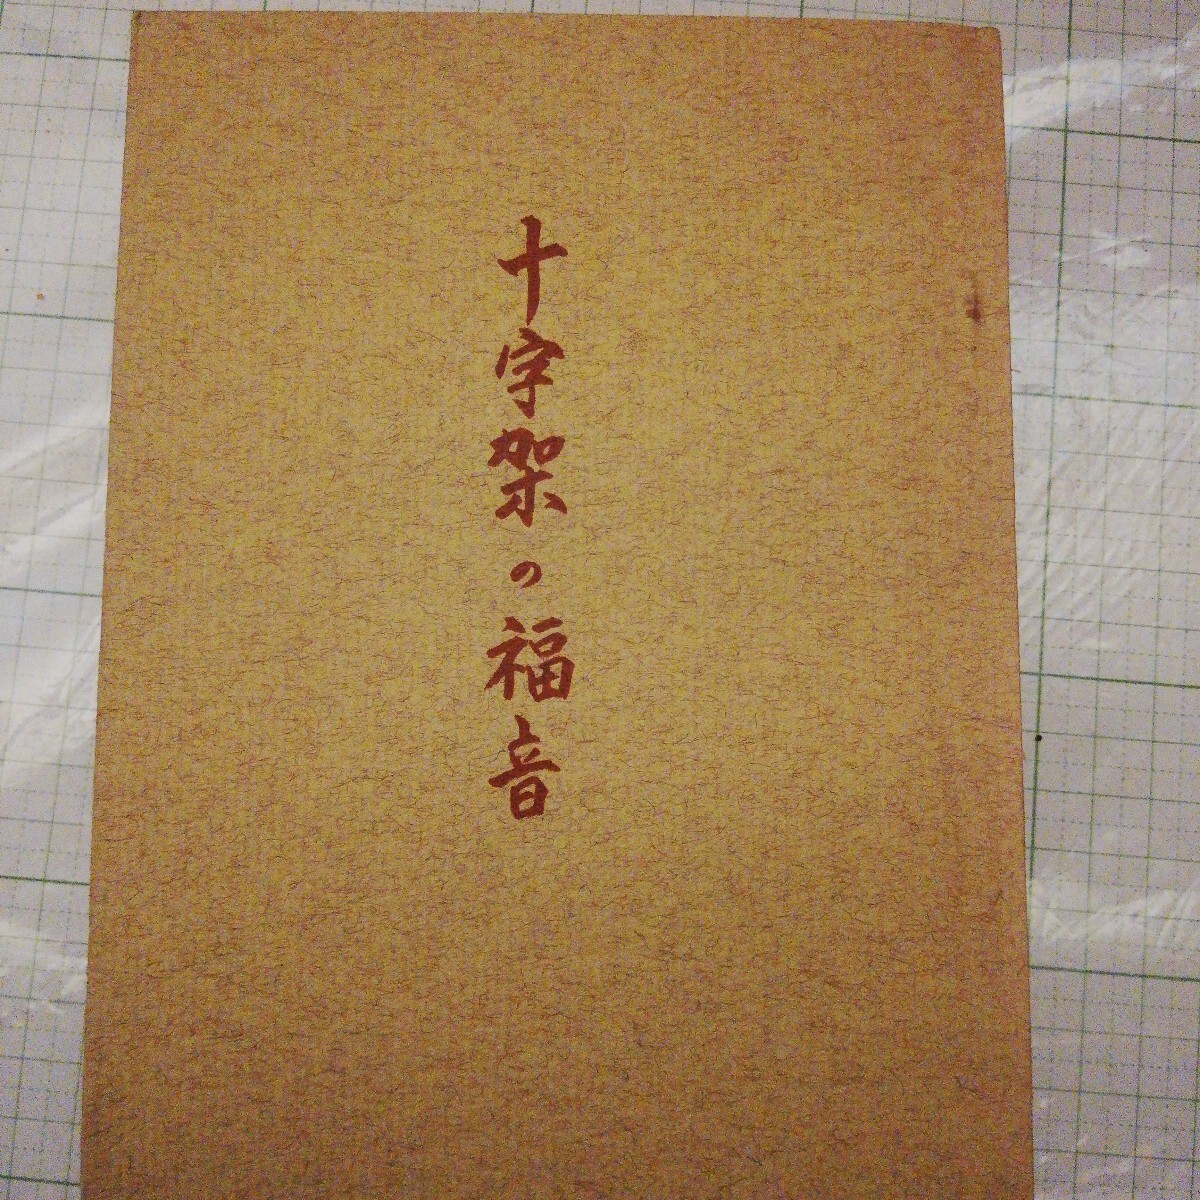 十字架の福音